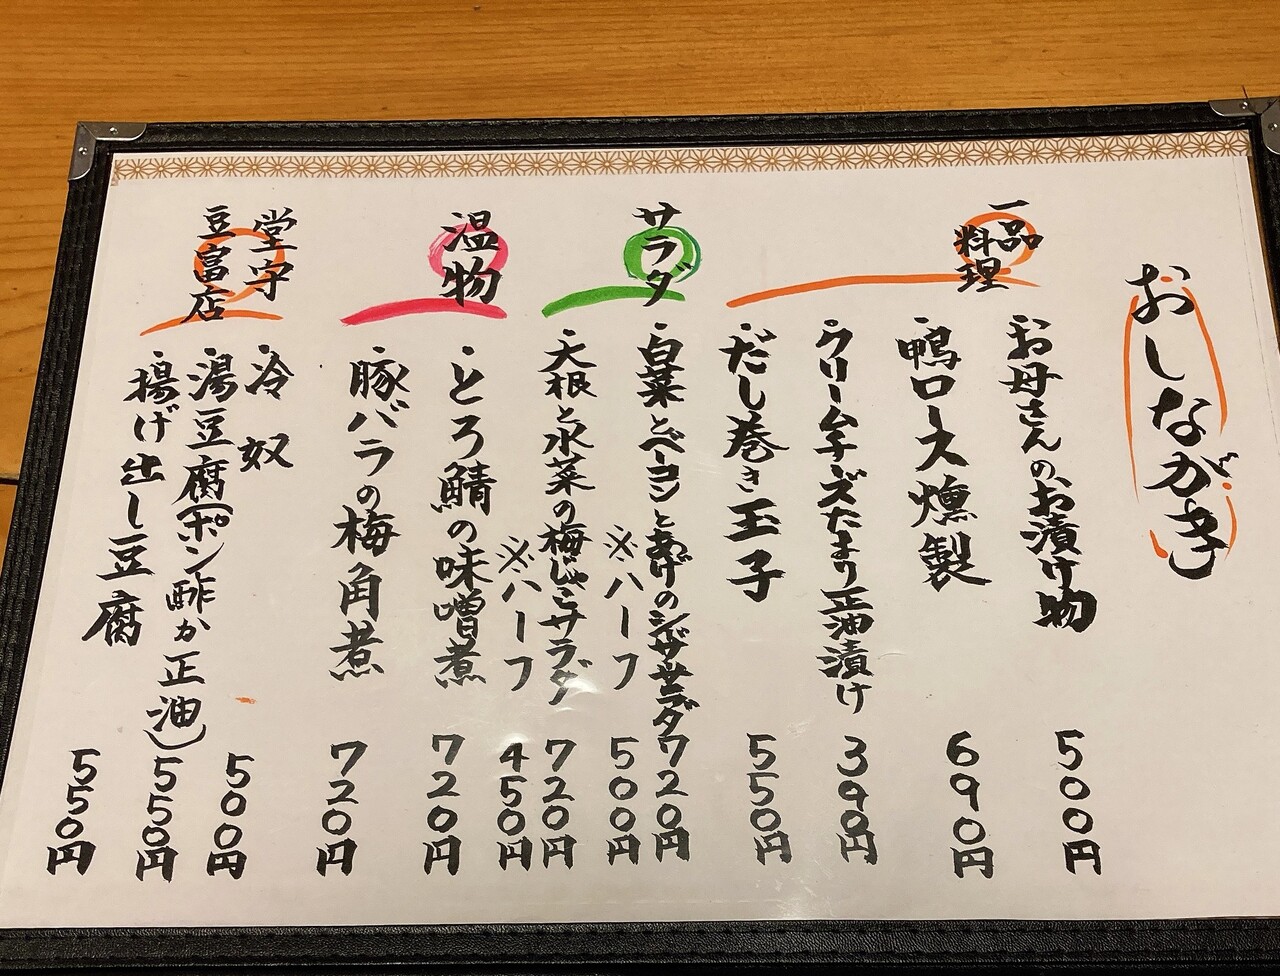 おしながき
一品
料理
・お母さんのお漬け物 500円
・鴨ロース燻製 690円
・クリームチーズたまり正油漬け 390円
・だし巻き玉子 550円
サラダ
・白菜とベーコンとあげのシーザーサラダ 720円
※ハーフ 500円
・大根と水菜の梅じゃこサラダ 720円
※ハーフ 450円
温物
・とろ鯖の味噌煮 720円
・豚バラの梅角煮 720円
堂守
豆富店
・冷奴 500円
・湯豆腐(ポン酢か正油) 550円
・揚げ出し豆腐 550円